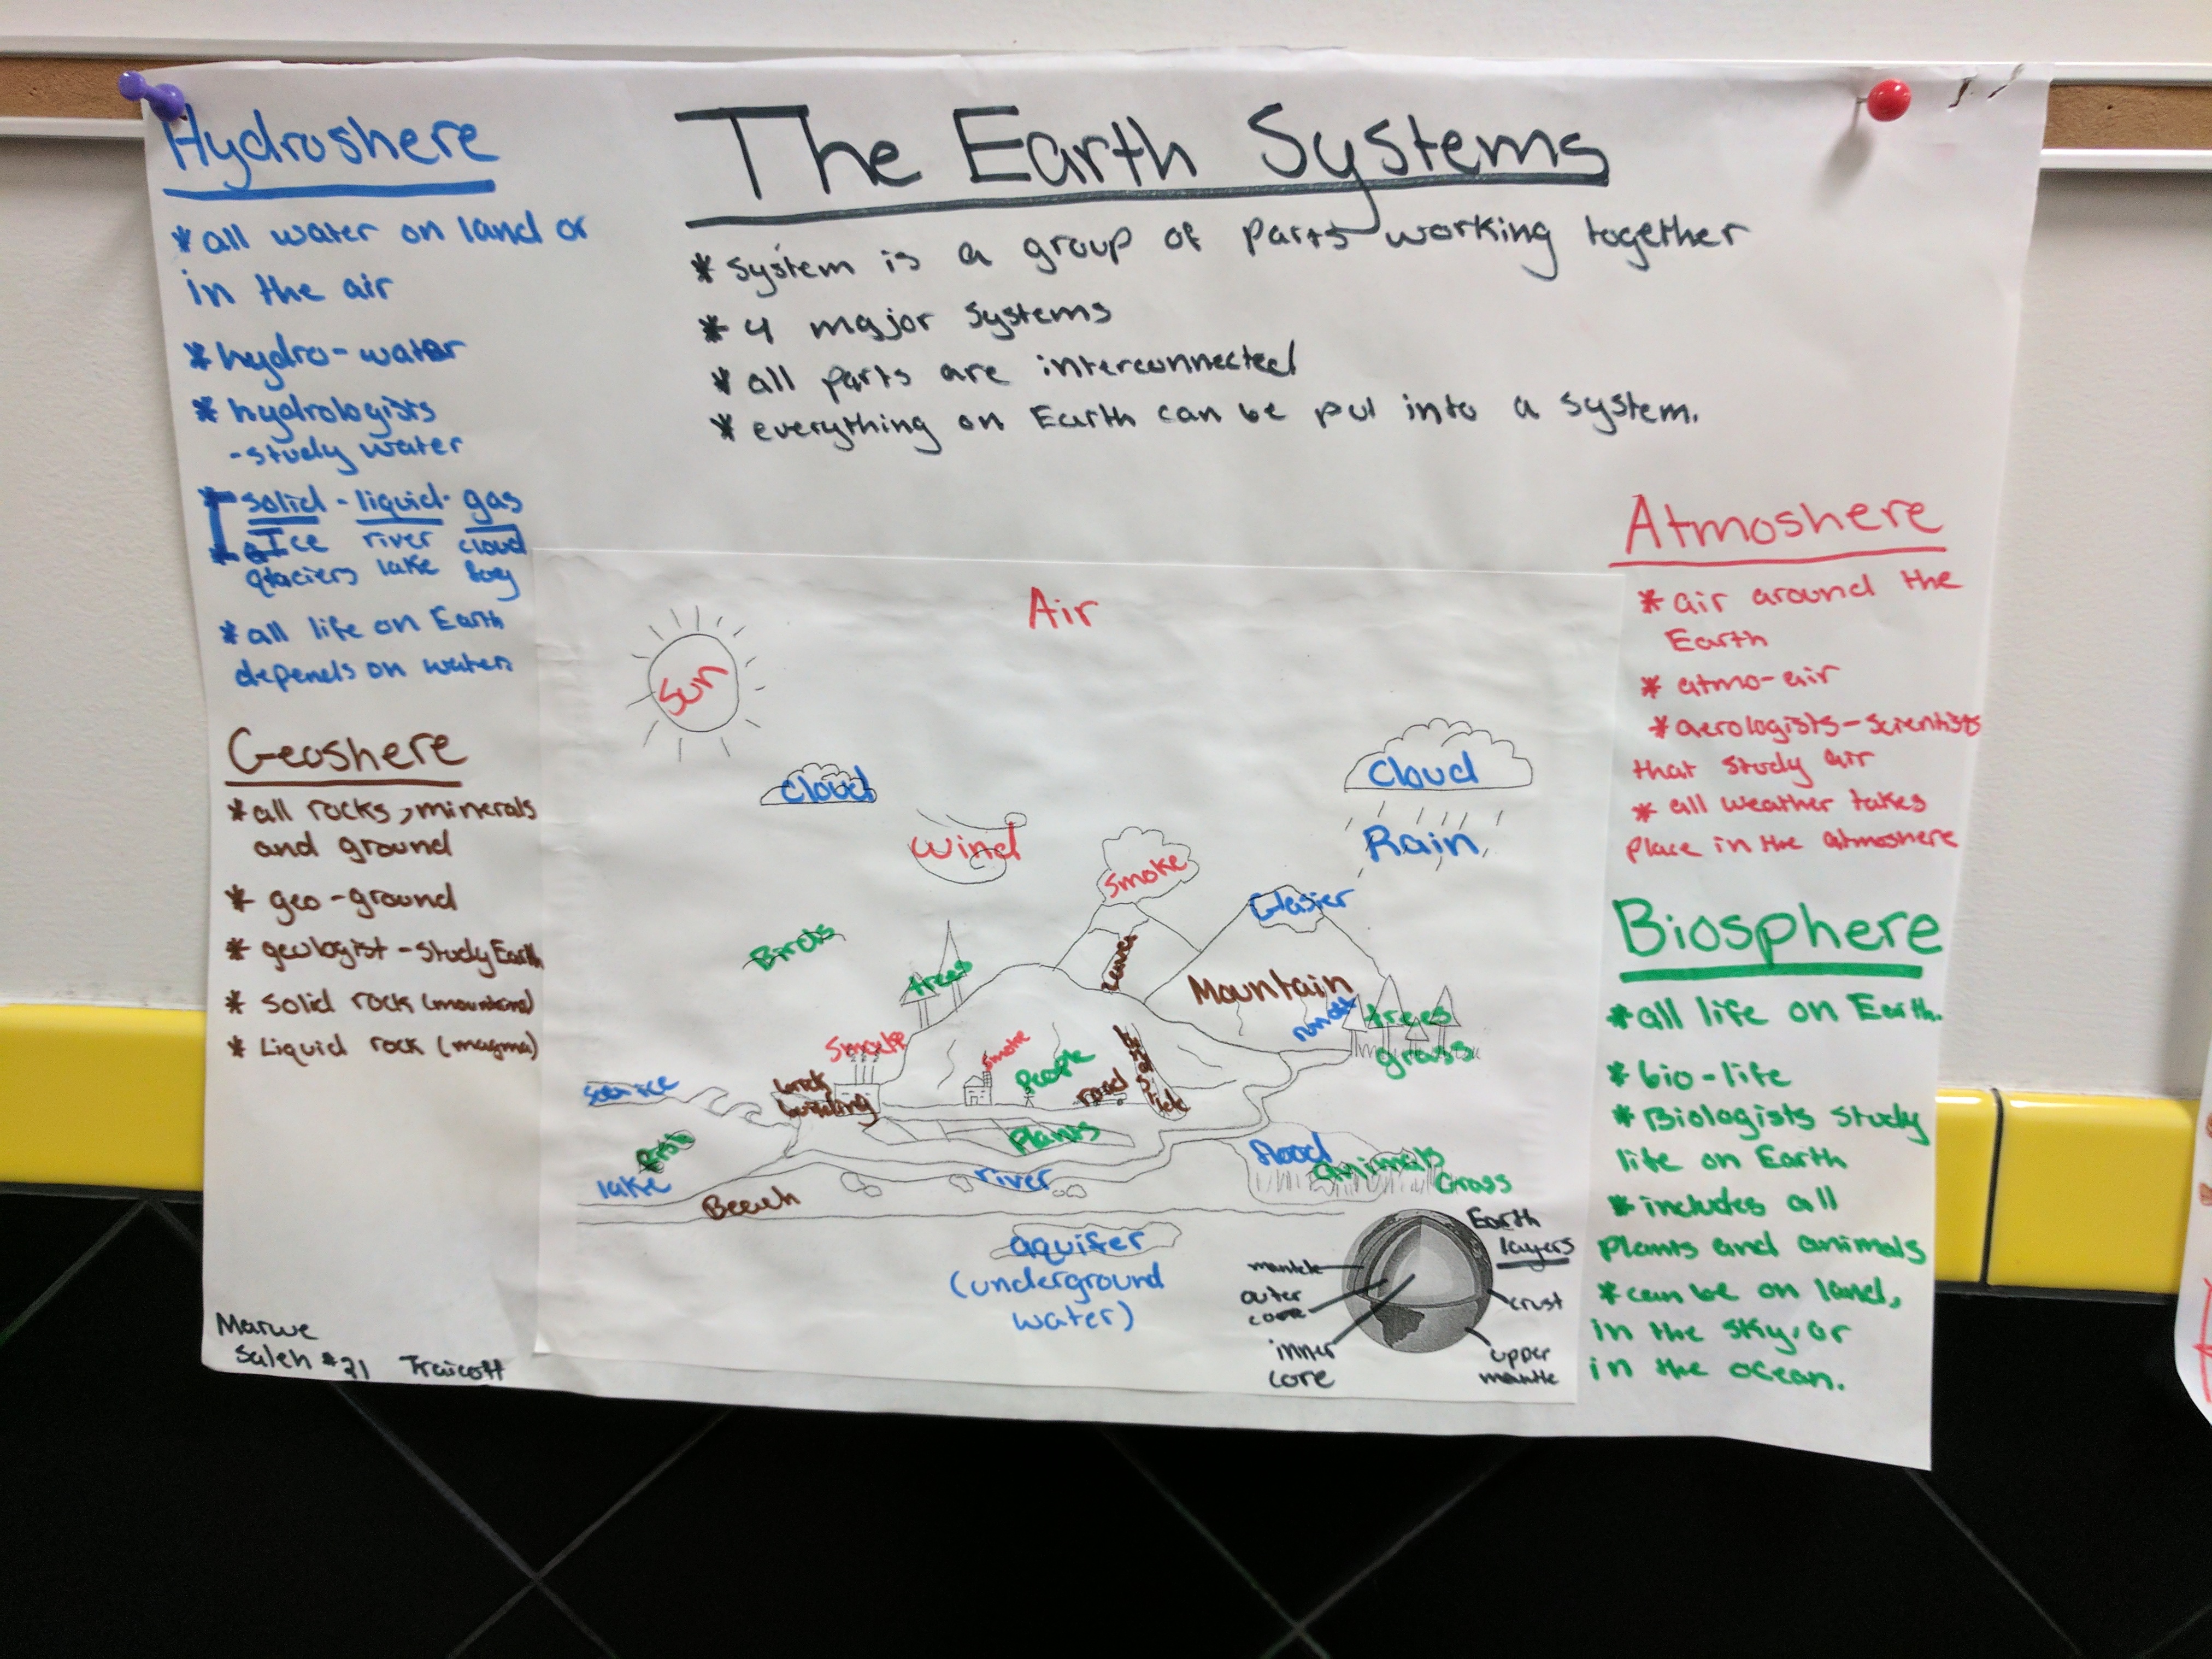 Hydroshere
* all water on land or
in the air
* hydro - water
* hydrologists
- study water
* solid - liquid - gas
Ice river cloud
glaciers lake fog
* all life on Earth
depends on water.
The Earth Systems
* system is a group of parts working together
* 4 major systems
* all parts are interconnected
* everything on Earth can be put into a system.
Geoshere
* all rocks, minerals
and ground
* geo - ground
* geologist - study Earth
* solid rock (mountains)
* Liquid rock (magma)
Atmoshere
* air around the
Earth
* atmo - air
* aerologists - scientists
that study air
* all weather takes
place in the atmoshere
Biosphere
* all life on Earth.
* bio - life
* Biologists study
life on Earth
* includes all
plants and animals
* can be on land,
in the sky, or
in the ocean.
Air
Sun
Cloud
Cloud
Wind
Rain
Smoke
Glasier
Birds
trees
Mountain
trees
grass
Smoke
smoke
People
brick
building
road
Plants
fish
lake
Beach
river
flood
Animals
Grass
aquifer
(underground
water)
Earth
layers
mantle
outer
core
inner
core
crust
upper
mantle
Marwe
Saleh #21 Traicoff